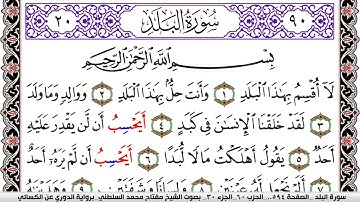 ٩٠ سُورَةُ الْبَلَدِ ٢٠
بِسْمِ اللَّهِ الرَّحْمَٰنِ الرَّحِيمِ
لَآ أُقْسِمُ بِهَٰذَا الْبَلَدِ ١ وَأَنتَ حِلُّۢ بِهَٰذَا الْبَلَدِ ٢ وَوَالِدٍ وَمَا وَلَدَ
٣ لَقَدْ خَلَقْنَا الْإِنسَٰنَ فِي كَبَدٍ ٤ أَيَحْسِبُ أَن لَّن يَقْدِرَ عَلَيْهِ
أَحَدٌ ٥ يَقُولُ أَهْلَكْتُ مَالًا لُّبَدًا ٦ أَيَحْسِبُ أَن لَّمْ يَرَهُۥٓ أَحَدٌ
٧ أَلَمْ نَجْعَل لَّهُۥ عَيْنَيْنِ ٨ وَلِسَانًا وَشَفَتَيْنِ ٩
سورة البلد الصفحة ٥٩٤ .. الحزب ٦٠ الجزء ٣٠ .. بصوت الشيخ مفتاح محمد السلطني .. برواية الدوري عن الكسائي